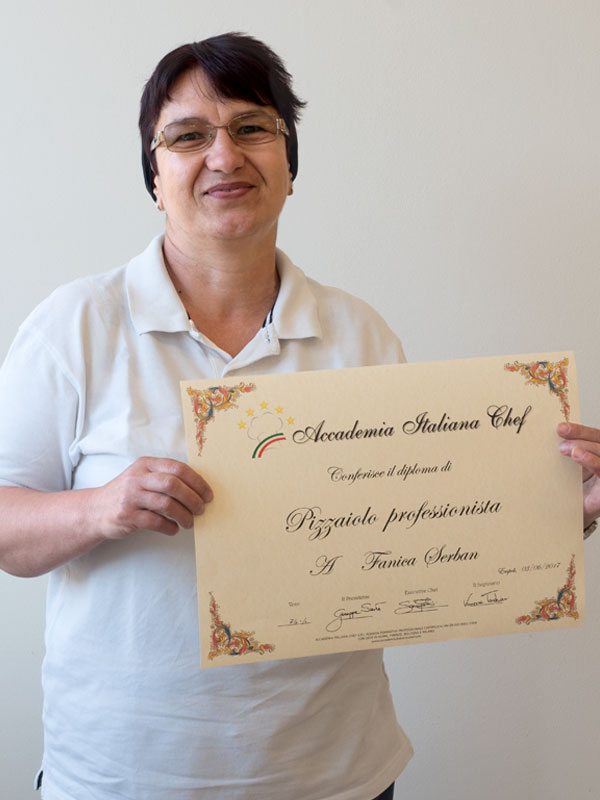 Accademia Italiana Chef
Conferisce il diploma di
Pizzaiolo professionista
A Fanica Serban
Empoli, 03/06/2017
Voto Il Presidente Executive Chef Il Segretario